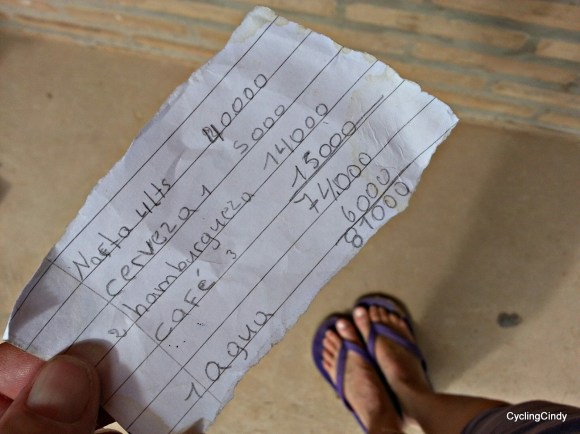 Nafta 4 lts 40000
cerveza 1 5000
2 hamburgueza 14000
café 3 15000
74000
1 agua 6000
81000
CyclingCindy